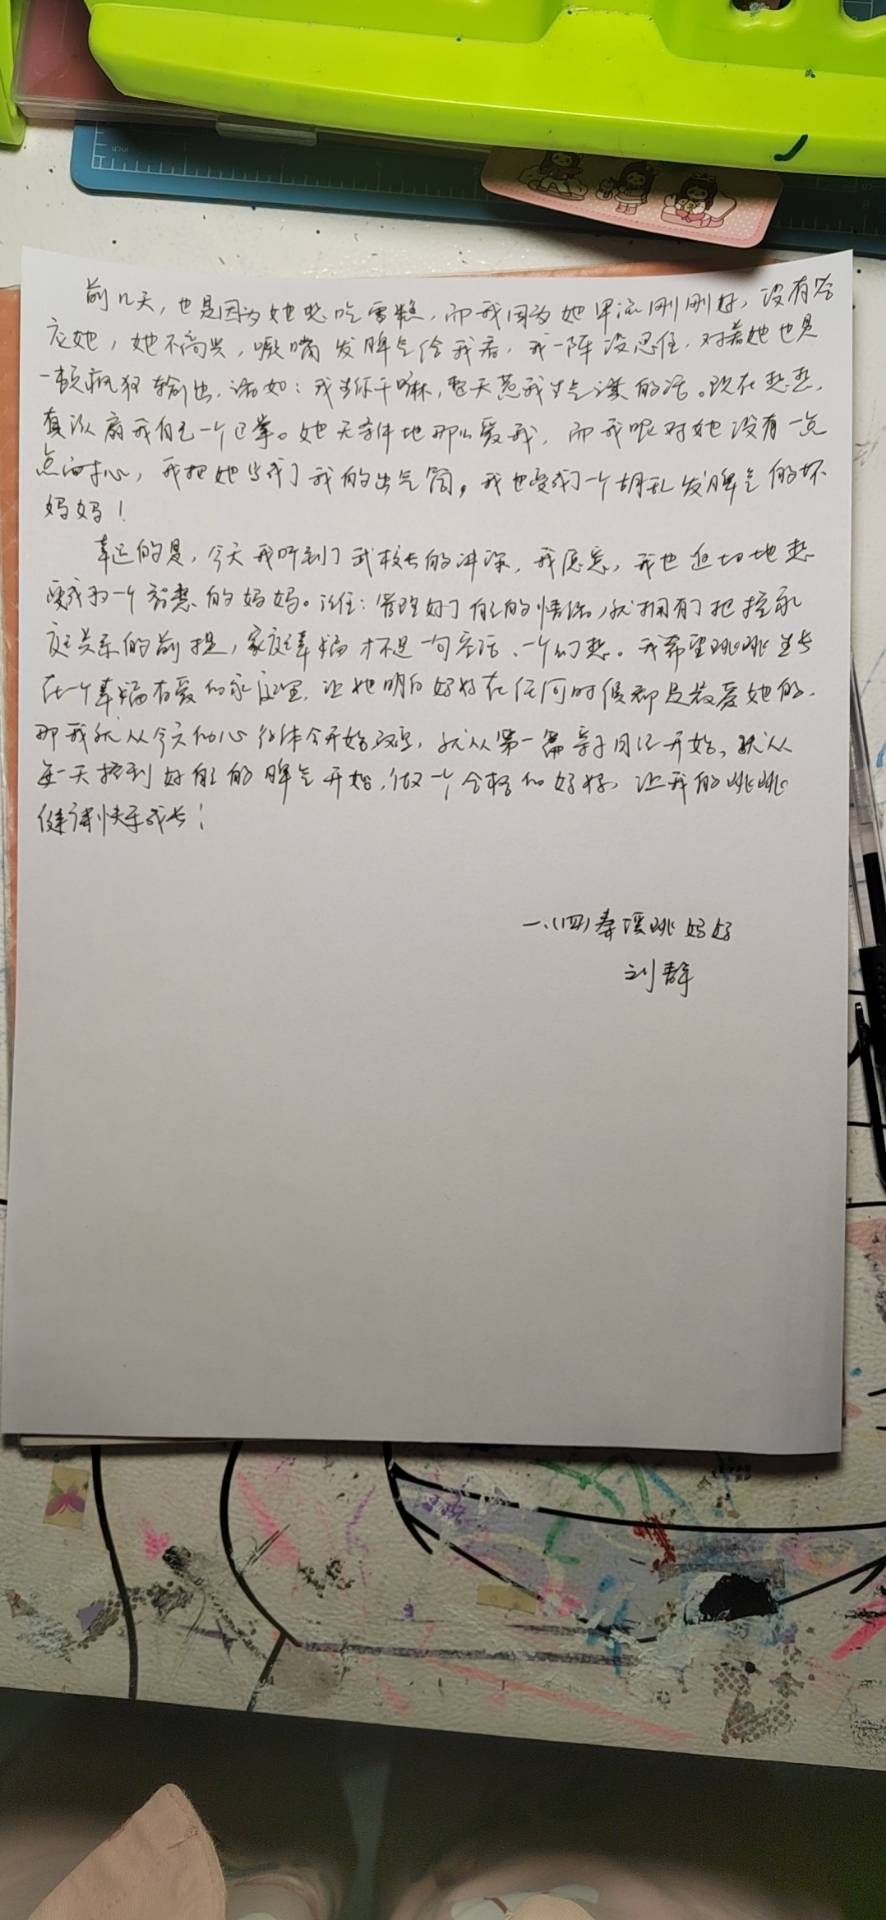 前几天，也是因为她想吃雪糕，而我因为她甲流刚刚好，没有答
应她，她不高兴，噘嘴发脾气给我看，我一阵没忍住，对着她也是
一顿疯狂输出，诸如：我当你干嘛，整天惹我生气之类的话。现在想想，
真该扇我自己一个巴掌。她无条件地那么爱我，而我呢对她没有一点
点的耐心，我把她当成了我的出气筒，我也变成了一个胡乱发脾气的坏
妈妈！
幸运的是，今天我听到了武校长的讲课，我愿意，我也迫切地想
要成为一个智慧的妈妈。记住：管理好了自己的情绪，就拥有了把控家
庭关系的前提，家庭幸福才不是一句空话、一个幻想。我希望跳跳生长
在一个幸福有爱的家庭里，让她明白妈妈在任何时候都是最爱她的。
那我就从今天的心得体会开始改变，就从第一篇亲子日记开始，就从
每一天控制好自己的脾气开始，做一个合格的好妈妈，让我的跳跳
健康快乐成长！
一、(四)秦 跳妈妈
刘静